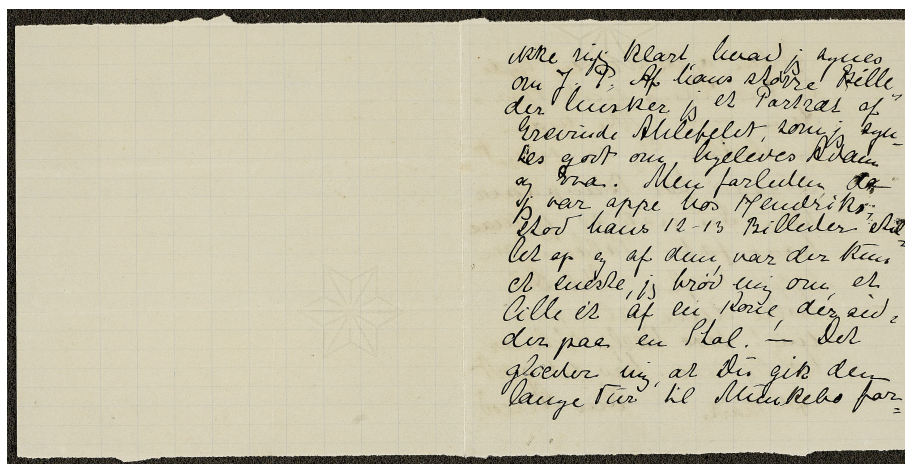 ikke rigtig klart, hvad jeg synes
om J. P. Af hans større Bille
der husker jeg et Portræt af
Grevinde Ahlefeldt, som jeg syn-
tes godt om, ligeledes Adam
og Eva. Men forleden da
jeg var oppe hos Hendriks:
stod hans 12-13 Billeder stil-
let op og af dem, var der kun
et eneste, jeg brød mig om, et
lille et af en Kone, der sid-
der paa en Stol. — Det
glæder mig, at Du gik den
lange Tur til Munkebo for=